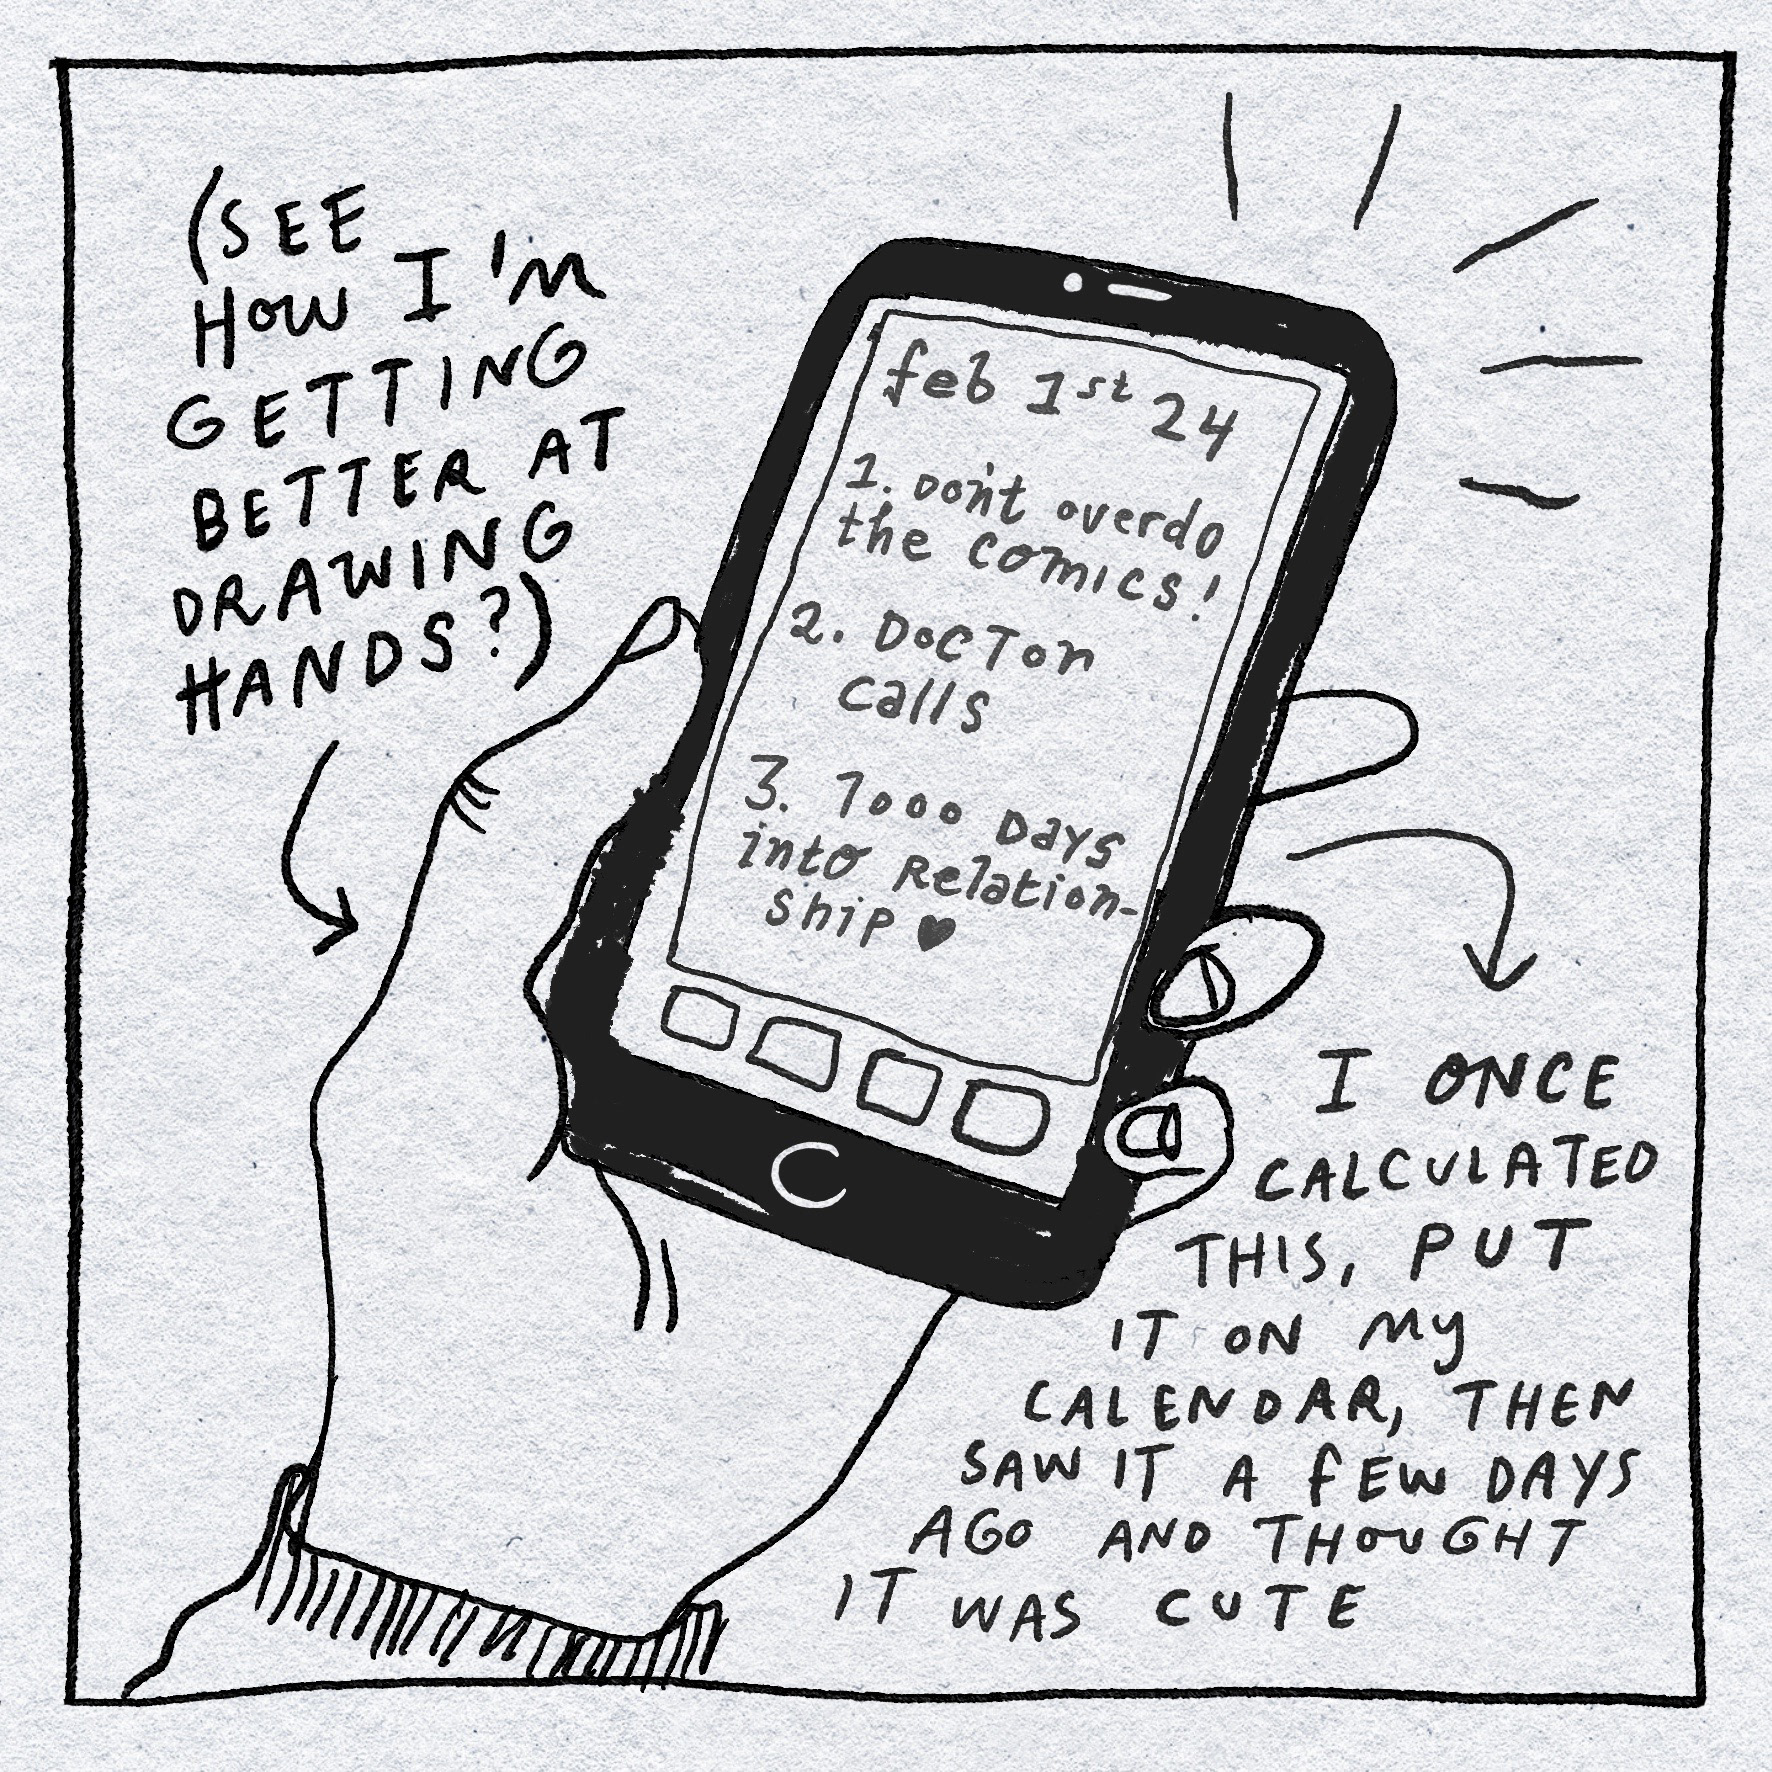 (SEE
HOW I'M
GETTING
BETTER AT
DRAWING
HANDS?)
feb 1st 24
1. Don't overdo
the comics!
2. DOCTOR
calls
3. 1000 DAYS
into Relation-
ship ♥
I ONCE
CALCULATED
THIS, PUT
IT ON MY
CALENDAR, THEN
SAW IT A FEW DAYS
AGO AND THOUGHT
IT WAS CUTE